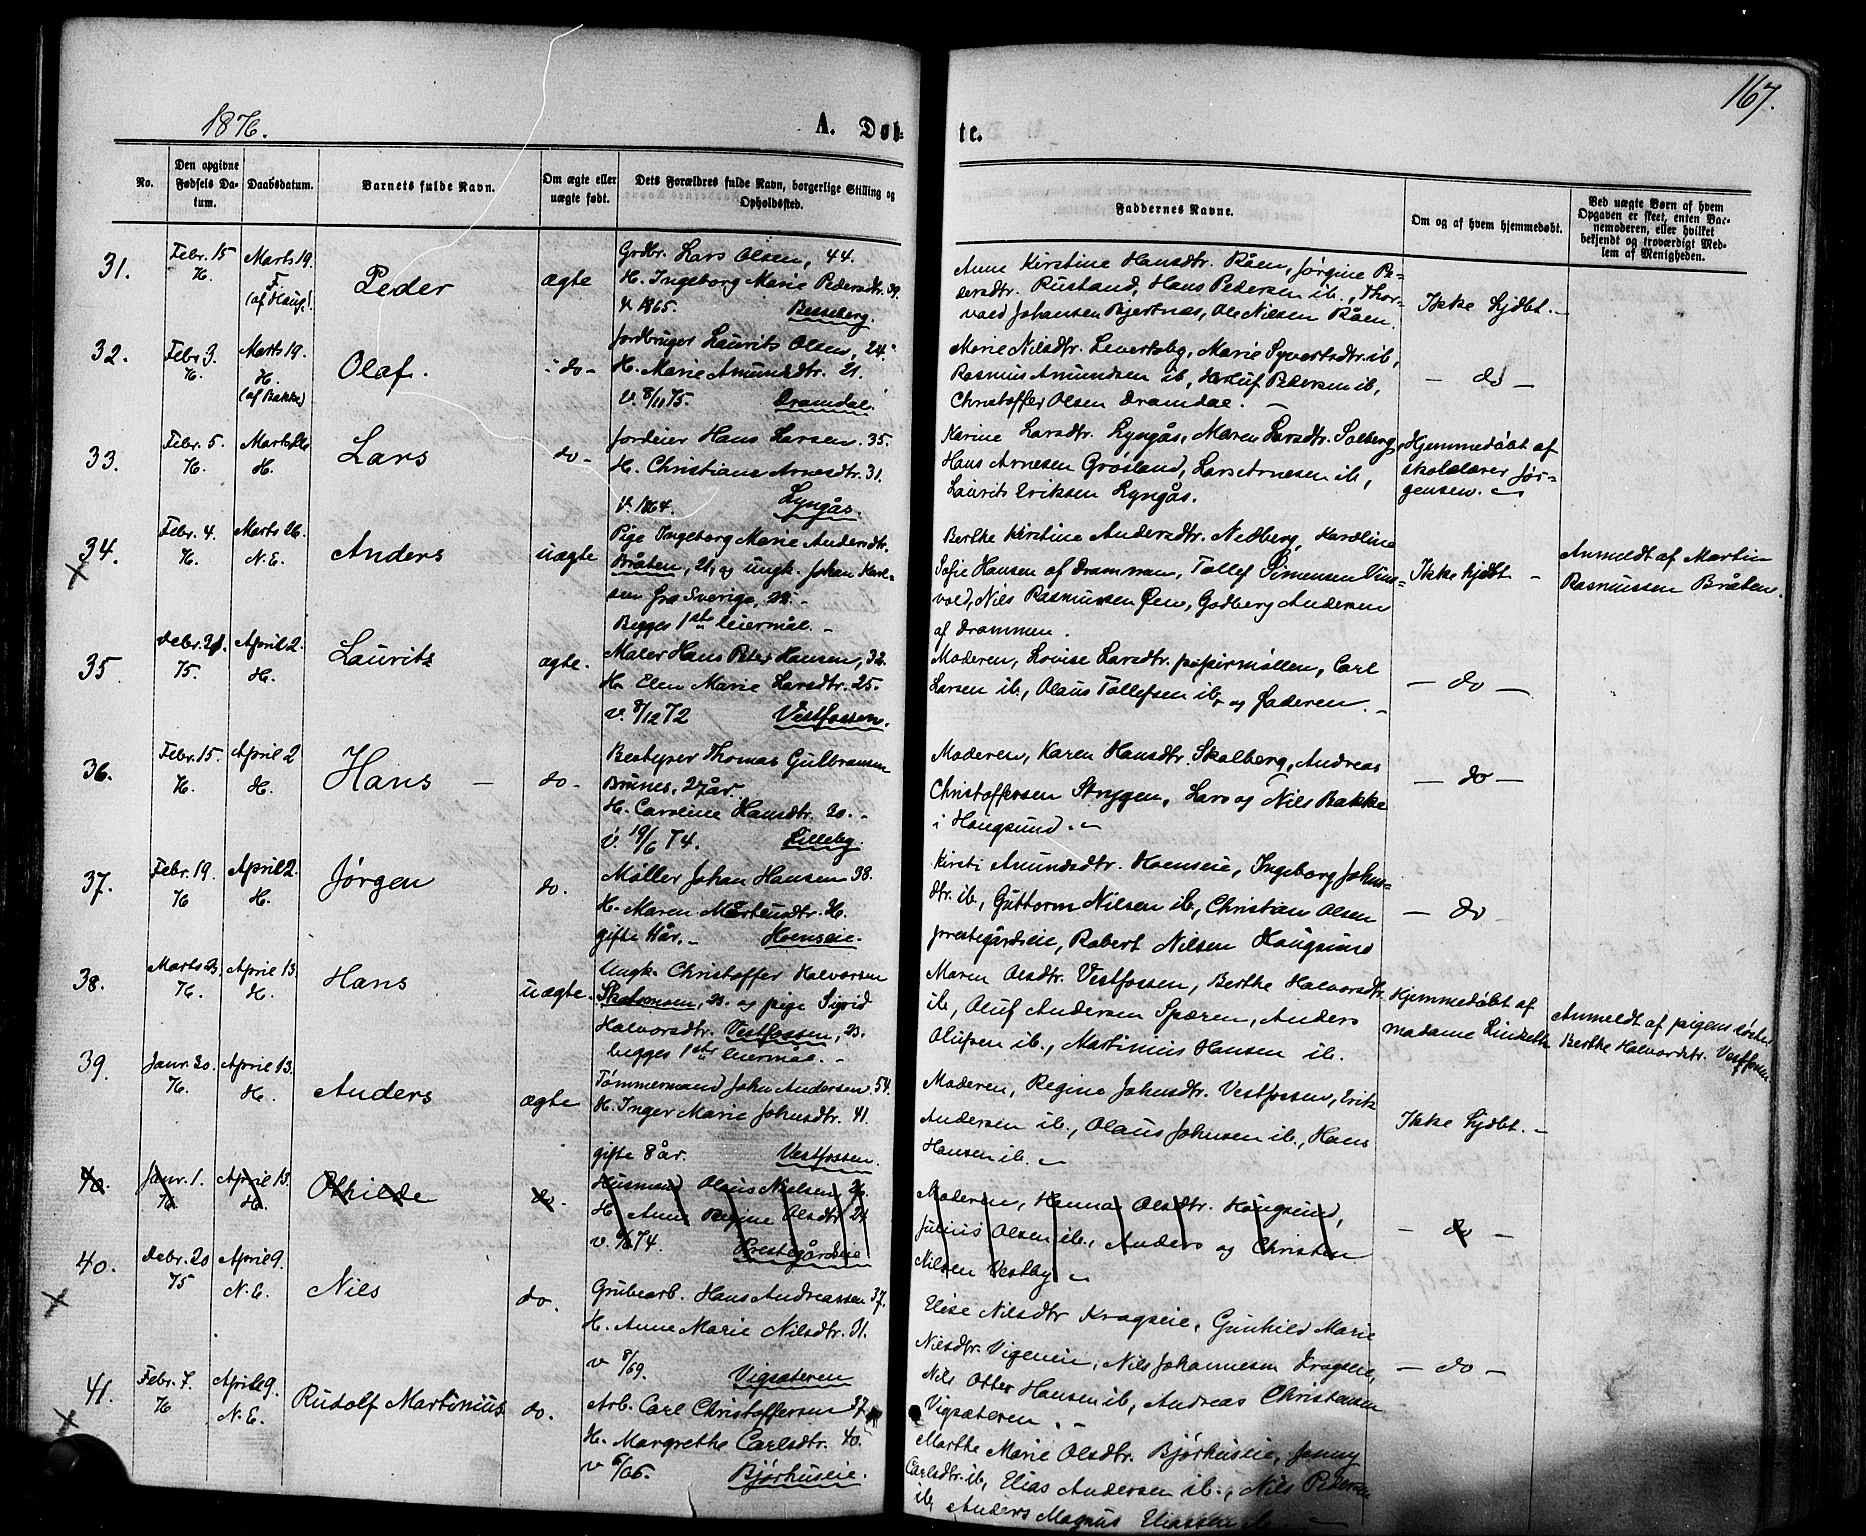 1876.
A. Døb-
te.
167.
No.
Den opgivne Fødsels Da-
tum.
Daabsdatum.
Barnets fulde Navn.
Om ægte eller
uægte født.
Dets Forældres fulde Navn, borgerlige Stilling og
Opholdssted.
Faddernes Navne.
Om og af hvem hjemmedøbt.
Ved uægte Børn af hvem
Opgaven er skeet, enten Bar-
nemoderen, eller hvilket
bekjendt og troværdigt Med-
lem af Menigheden.
31.
Febr. 15
76.
Marts 19.
F.
(af Haug)
Peder
ægte
Grdbr. Lars Olsen, 44.
H. Ingeborg Marie Pedersdtr. 39.
v. 1865. Besseberg.
Anne Kirstine Hansdtr. Råen, Jørgine Pe-
dersdtr. Rustand, Hans Pedersen ib., Thor-
vald Johansen Bjertnæs, Ole Nilsen Råen.
Ikke hjdbt. -
32.
Febr. 3.
76.
Marts 19.
H.
(af Bakke)
Olaf.
- do -
Jordbruger Laurits Olsen, 24.
H. Marie Amundsdtr. 21.
V. 8/11 75. Dramdal.
Marie Nilsdtr. Levertsby, Marie Syvertsdtr. ib,
Rasmus Amundsen ib, Herluf Pedersen ib,
Christoffer Olsen Dramdal. -
- do -
33.
Febr. 5.
76.
Marts 26
H.
Lars
do -
Jordeier Hans Larsen. 35.
H. Christiane Arnesdtr. 31.
V. 1864. Lyngås.
Karine Larsdtr. Lyngås, Maren Larsdtr. Solberg,
Hans Arnesen Grøsland, Lars Arnesen ib,
Laurits Eriksen Lyngås.
Hjemmedøbt af
skolelærer Jør-
gensen.
34.
Febr. 4.
76.
Marts 26.
N.E.
Anders
uægte
Pige Ingeborg Marie Andersdtr.
Bråten, 21, og ungk. Johan Karl-
sen fra Sverige, 22. -
Begges 1ste leiermål. -
Berthe Kirstine Andersdtr. Nedberg, Karoline
Sofie Hansen af Drammen, Tollef Simensen
vold, Nils Rasmussen Øen, Godberg Andersen
af Drammen.
Ikke hjdbt -
Anmeldt af Martin
Rasmussen Bråten.
35.
Debr. 21.
75.
April 2.
H.
Laurits
ægte.
Maler Hans Peter Hansen, 32.
H. Elen Marie Larsdtr. 25.
v. 8/12 72 Vestfossen.
Moderen, Lovise Larsdtr. papirmøllen, Carl
Larsen ib., Olaus Tollefsen ib, og Faderen. -
- do -
36.
Febr. 15.
76.
April 2
H.
Hans -
do -
Bestyrer Thomas Gulbransen
Brunes, 27 år.
H. Caroline Hansdtr. 20. -
v. 19/6 74. Lilleby.
Moderen, Karen Hansdtr. Skalberg, Andreas
Christoffersen Strygen, Lars og Nils Bakke
i Hougsund.
- do -
37.
Febr. 19.
76
April 2.
H.
Jørgen
do.
Møller Johan Hansen 38.
H. Maren Mårtensdtr.
gifte år. - Hoenseie.
Kirsti Amundsdtr. Hoenseie, Ingeborg Johns-
dtr. ib, Guttorm Nilsen ib, Christian Olsen
prestegårdseie, Robert Nilsen Hougsund
- do -
38.
Marts 23.
76.
April 13.
H.
Hans
uægte.
Ungk. Christoffer Halvorsen
23. og pige Sigrid
Halvorsdtr. Vestfossen, 23.
begges 1ste leiermål. -
Maren Olsdtr. Vestfossen, Berthe Halvorsdtr.
ib, Oluf Andersen Spæren, Anders
Olufsen ib., Martinius Hansen ib.
Hjemmedøbt af
madame
Anmeldt af pigens søster
Berthe Halvorsdtr. Vestfossen
39.
Janr. 20.
76.
April 13.
H.
Anders
ægte
Tømmermand John Andersen 54.
H. Inger Marie Johnsdtr. 41.
gifte 8 år. Vestfossen.
Moderen, Regine Johnsdtr. Vestfossen, Erik
Andersen ib., Olaus Johnsen ib., Hans
Hansen ib.
Ikke hjdbt. -
40.
Janr. 1.
76
April 13.
H.
Othilde
do -
Husmand Olaus Nielsen 26.
H. Anne Regine Olsdtr. 24
v. 74. Prestegårdseie
Moderen, Hanna Olsdtr. Hougsund,
Julius Olsen ib., Anders og Christen
Nilsen Vestby
- do -
40.
Debr. 20
75
April 9.
N.E.
Nils
do.
Grubearb. Hans Andreassen 37.
H. Anne Marie Nilsdtr. 31.
v 8/69. Vigsæteren
Elise Nilsdtr. Kragseie, Gunhild Marie
Nilsdtr. Vigeneie, Nils Johannesen Kragseie,
Nils Otter Hansen ib, Andreas Christensen
Vigsæteren. -
- do -
41.
Febr. 7.
76
April 9.
N.E.
Rudolf Martinius
do.
Arb. Carl Christoffersen 37.
H. Margrethe Carlsdtr. 40.
v Bjørhuseie.
Marthe Marie Olsdtr. Bjørhuseie, Jenny
Carlsdtr. ib, Elias Andersen ib., Nils Pedersen
ib, Anders Magnus Eliassen ib